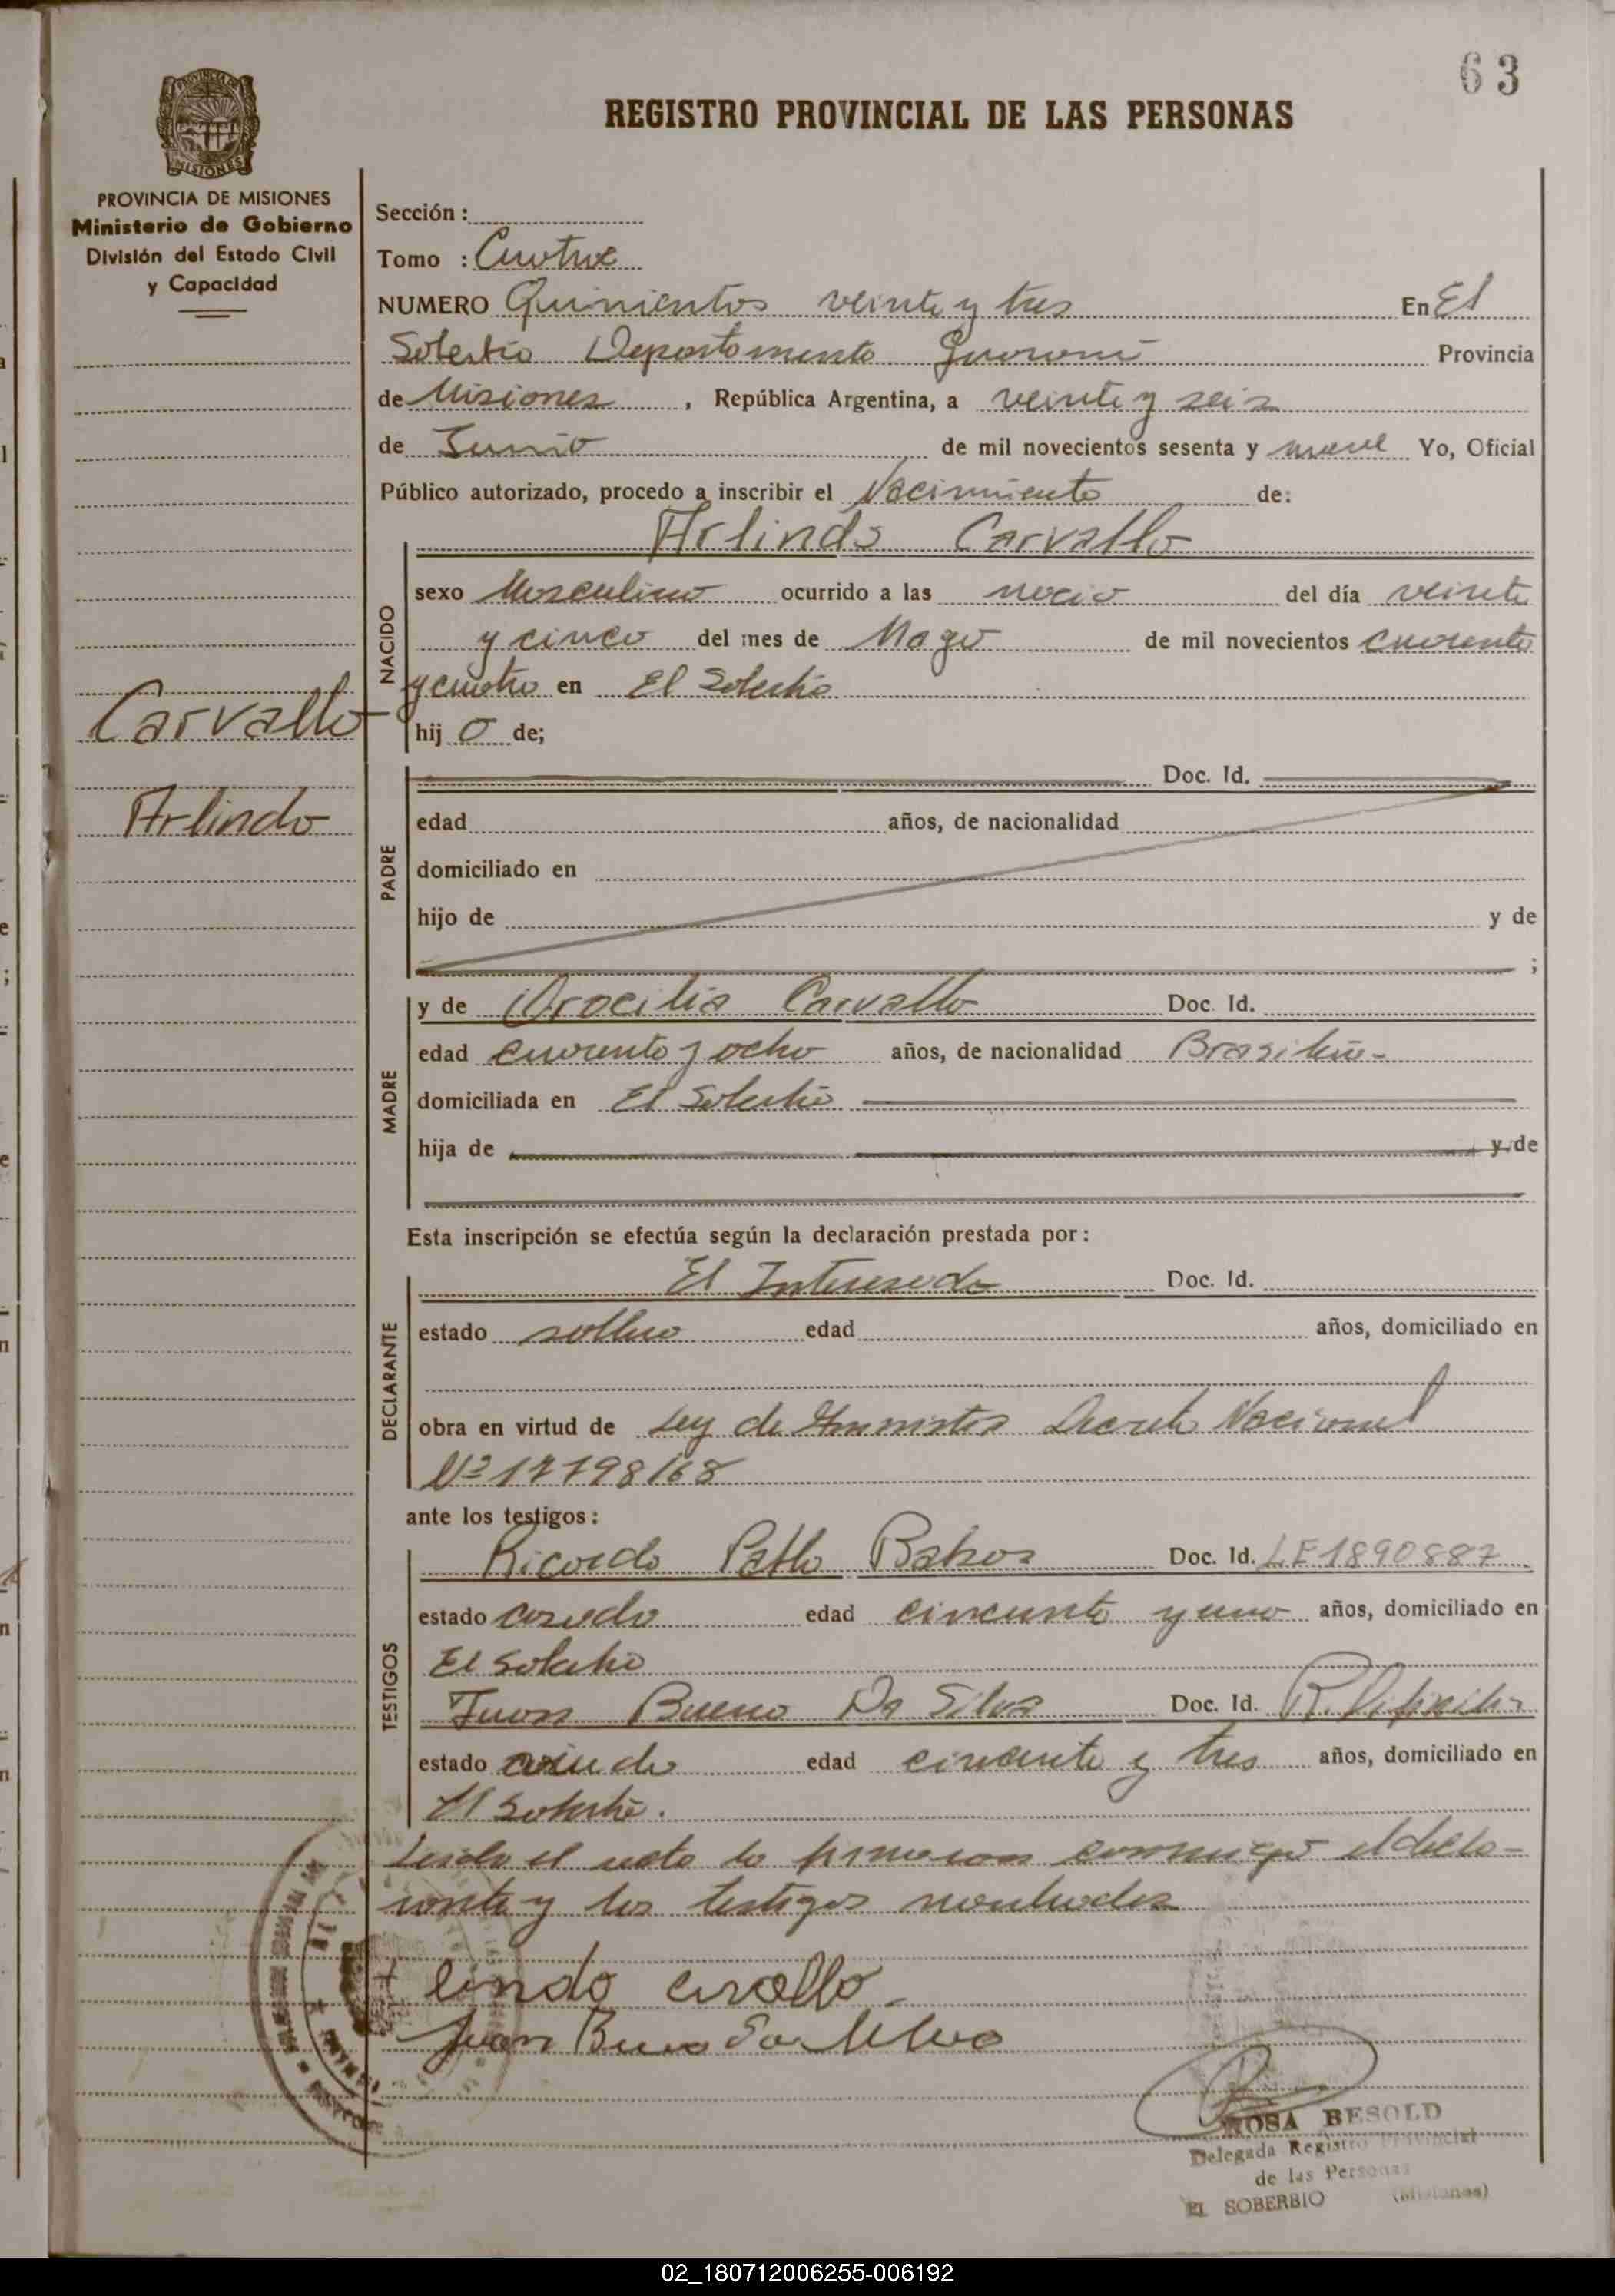 63
PROVINCIA DE MISIONES
REGISTRO PROVINCIAL DE LAS PERSONAS
PROVINCIA DE MISIONES
Ministerio de Gobierno
División del Estado Civil
y Capacidad
Carvallo
Arlindo
Sección :
Tomo : Cuatro
NUMERO Quinientos veinte y tres En El
Soberbio Departamento Guarani Provincia
de Misiones , República Argentina, a veinte y seis
de Junio de mil novecientos sesenta y nueve Yo, Oficial
Público autorizado, procedo a inscribir el Nacimiento de:
Arlindo Carvallo
NACIDO
sexo Masculino ocurrido a las del día veinte
y cinco del mes de Mayo de mil novecientos cuarenta
y cuatro en El Soberbio
hij o de;
PADRE
Doc. Id.
edad años, de nacionalidad
domiciliado en
hijo de y de
;
MADRE
y de Orocilia Carvallo Doc. Id.
edad cuarenta y ocho años, de nacionalidad Brasileña
domiciliada en El Soberbio
hija de y de
Esta inscripción se efectúa según la declaración prestada por :
DECLARANTE
El Interesado Doc. Id.
estado soltero edad años, domiciliado en
obra en virtud de Ley de Amnistia Decreto Nacional
Nº 17798/68
ante los testigos :
TESTIGOS
Ricardo Pablo Doc. Id. LE 1890887
estado casado edad cincuenta y uno años, domiciliado en
El Soberbio
Juan Bueno Da Silva Doc. Id.
estado edad cincuenta y tres años, domiciliado en
El Soberbio.
Leido el acta la firmaron conmigo el decla-
rante y los testigos nombrados
lindo
Juan
ROSA BESOLD
Delegada Registro Provincial
de las Personas
EL SOBERBIO (Misiones)
02_180712006255-006192